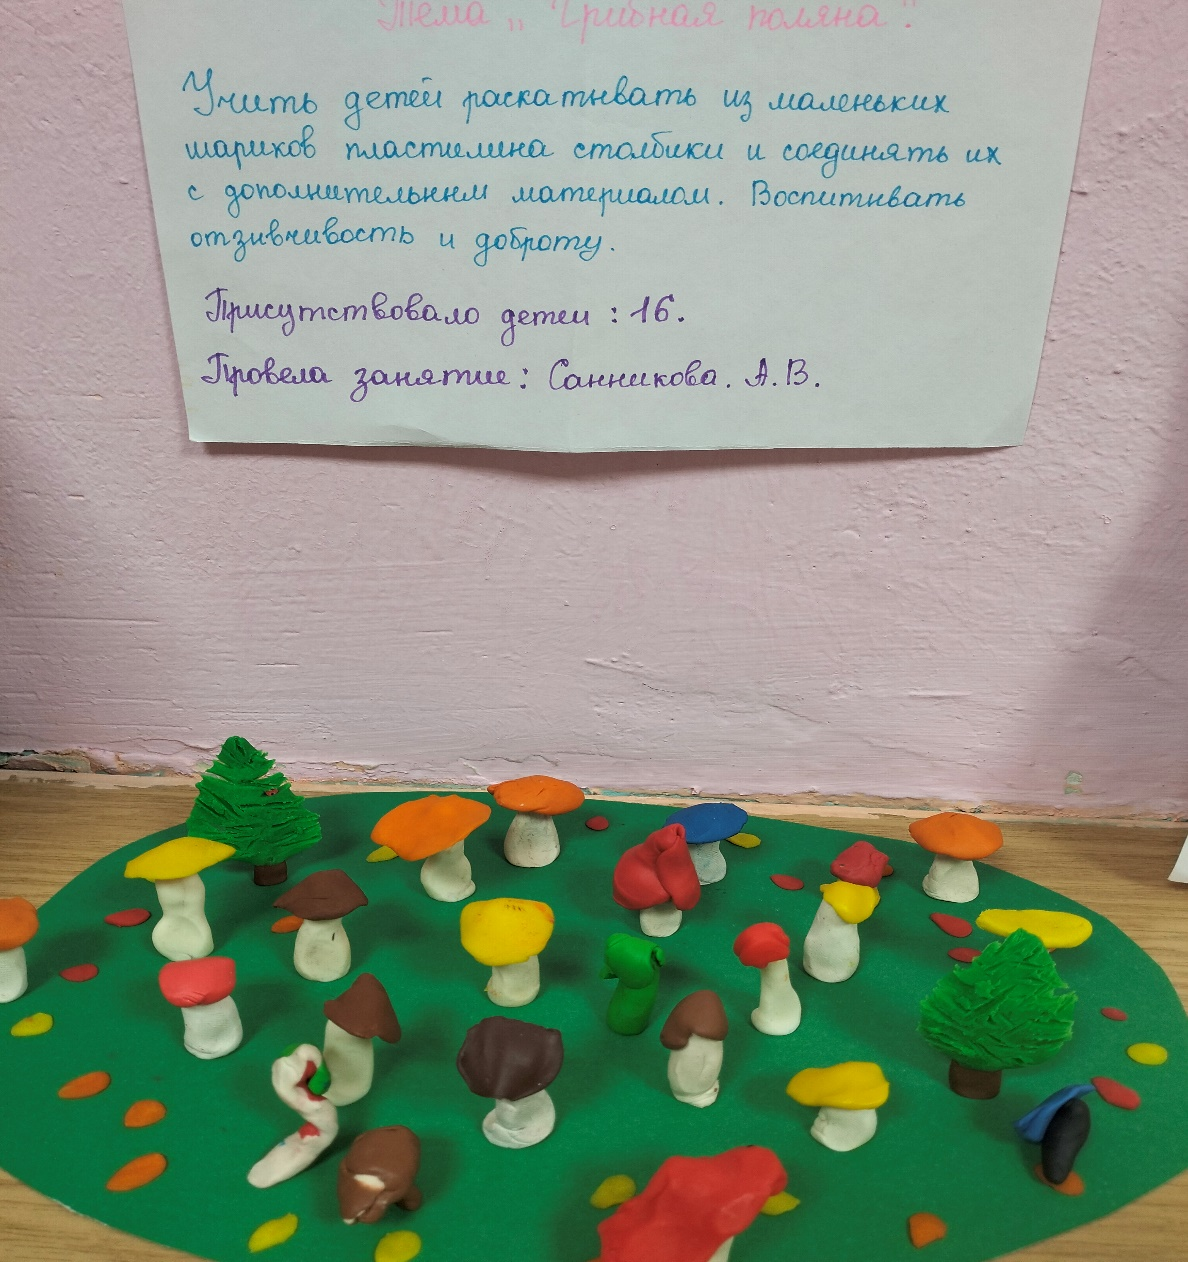 Тема „Грибная поляна".
Учить детей раскатывать из маленьких
шариков пластилина столбики и соединять их
с дополнительнм материалом. Воспитывать
отзывчивость и доброту.
Присутствовало детей : 16.
Провела занятие: Санникова. А.В.